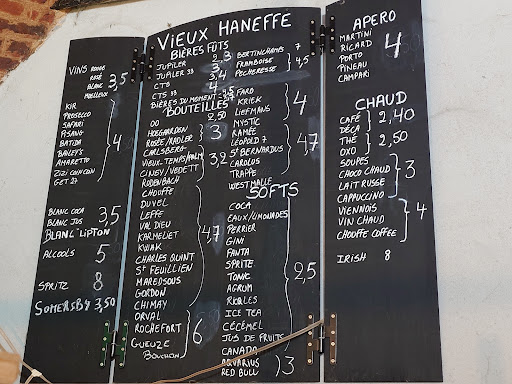 VIEUX HANEFFE
VINS ROUGE
ROSÉ
BLANC
MOELLEUX
3,5
KIR
PROSECCO
SAFARI
PISANG
BATIDA
BAILEY'S
AMARETTO
ZIZI COINCOIN
GET 27
4
BLANC COCA
BLANC JUS
3,5
BLANC LIPTON
ALCOOLS 5
SPRITZ 8
SOMERSBY 3,50
BIÈRES FUTS
JUPILER 2,3
JUPILER 33 3
CTB 3,4
CTB 33 4
BIÈRES DU MOMENT 4,5
BERTINCHAMPS 7
FRAMBOISE
PECHERESSE
4,5
BOUTEILLES
OO 2,50
HOEGAARDEN
ROSÉE/RADLER
3
CARLSBERG
VIEUX-TEMPS
CINEY/VEDETT
RODENBACH
3,2
CHOUFFE
DUVEL
LEFFE
VAL DIEU
KARMELIET
KWAK
CHARLES QUINT
ST FEUILLIEN
MAREDSOUS
GORDON
CHIMAY
4,7
ORVAL
ROCHEFORT
GUEUZE
BOUCHON
6
FARO
KRIEK
LIEFMANS
MYSTIC
4
RAMÉE
LÉOPOLD 7
ST BERNARDUS
CAROLUS
TRAPPE
WESTMALLE
4,7
SOFTS
COCA
EAUX/LIMONADES
PERRIER
GINI
FANTA
SPRITE
TONIC
AGRUM
ICE TEA
CÉCÉMEL
JUS DE FRUITS
2,5
CANADA
AQUARIUS
RED BULL
3
APERO
MARTINI
RICARD
PORTO
PINEAU
CAMPARI
4
CHAUD
CAFÉ
DÉCA
2,40
THÉ
OXO
2,50
SOUPES
CHOCO CHAUD
LAIT RUSSE
CAPPUCCINO
3
VIENNOIS
VIN CHAUD
CHOUFFE COFFEE
4
IRISH 8